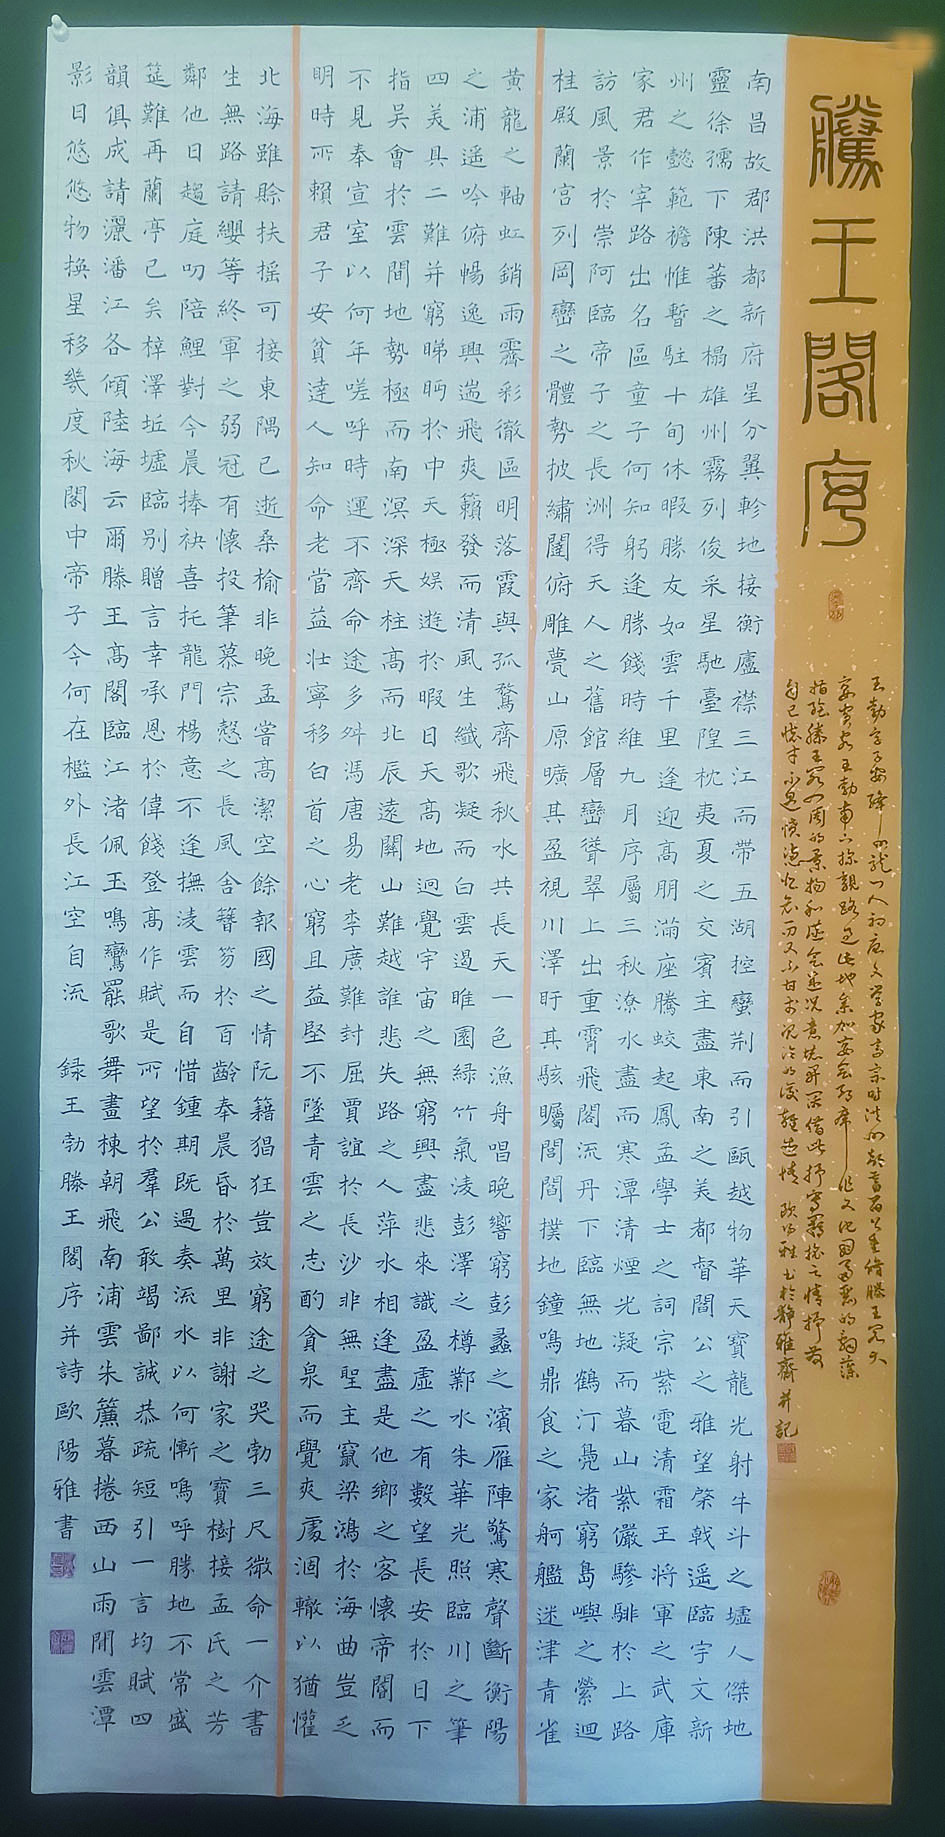 騰王閣序
王勃字子安絳州龍門人初唐文學家高宗時洪州都督閻公重修滕王閣大
宴賓客王勃南下探親路過此地參加宴會即席作文的詞藻
描繪滕王閣四周的景物和盛會盛況意境開闊借此抒寫羈旅之情抒發
自己懷才不遇憤懣而又不甘的複雜感情 歐陽雅書於靜雅齋并記
南昌故郡洪都新府星分翼軫地接衡廬襟三江而帶五湖控蠻荊而引甌越物華天寶龍光射牛斗之墟人傑地
靈徐孺下陳蕃之榻雄州霧列俊采星馳臺隍枕夷夏之交賓主盡東南之美都督閻公之雅望棨戟遥臨宇文新
州之懿範襜惟暫駐十旬休暇勝友如雲千里逢迎高朋滿座騰蛟起鳳孟學士之詞宗紫電清霜王將軍之武庫
家君作宰路出名區童子何知躬逢勝餞時維九月序屬三秋潦水盡而寒潭清煙光凝而暮山紫儼驂騑於上路
訪風景於崇阿臨帝子之長洲得天人之舊館層巒聳翠上出重霄飛閣流丹下臨無地鶴汀鳧渚窮島嶼之縈迴
桂殿蘭宮列岡巒之體勢披繡闥俯雕甍山原曠其盈視川澤盱其駭矚閭閻撲地鐘鳴鼎食之家舸艦迷津青雀
黃龍之軸虹銷雨霽彩徹區明落霞與孤鶩齊飛秋水共長天一色漁舟唱晚響窮彭蠡之濱雁陣驚寒聲斷衡陽
之浦遥吟俯暢逸興遄飛爽籟發而清風生纖歌凝而白雲遏睢園綠竹氣淩彭澤之樽鄴水朱華光照臨川之筆
四美具二難并窮睇眄於中天極娛遊於暇日天高地迥覺宇宙之無窮興盡悲來識盈虛之有數望長安於日下
指吳會於雲間地勢極而南溟深天柱高而北辰遠關山難越誰悲失路之人萍水相逢盡是他鄉之客懷帝閽而
不見奉宣室以何年嗟呼時運不齊命途多舛馮唐易老李廣難封屈賈誼於長沙非無聖主竄梁鴻於海曲豈乏
明時所賴君子安貧達人知命老當益壯寧移白首之心窮且益堅不墜青雲之志酌貪泉而覺爽處涸轍以猶懽
北海雖賒扶摇可接東隅已逝桑榆非晚孟嘗高潔空餘報國之情阮籍猖狂豈效窮途之哭勃三尺微命一介書
生無路請纓等終軍之弱冠有懷投筆慕宗愨之長風舍簪笏於百齡奉晨昏於萬里非謝家之寶樹接孟氏之芳
鄰他日趨庭叨陪鯉對今晨捧袂喜托龍門楊意不逢撫淩雲而自惜鍾期既遇奏流水以何慚嗚呼勝地不常盛
筵難再蘭亭已矣梓澤坵墟臨别贈言幸承恩於偉餞登高作賦是所望於羣公敢竭鄙誠恭疏短引一言均賦四
韻俱成請灑潘江各傾陸海云爾滕王高閣臨江渚佩玉鳴鸞罷歌舞畫棟朝飛南浦雲朱簾暮捲西山雨閒雲潭
影日悠悠物換星移幾度秋閣中帝子今何在檻外長江空自流 録王勃滕王閣序并詩歐陽雅書